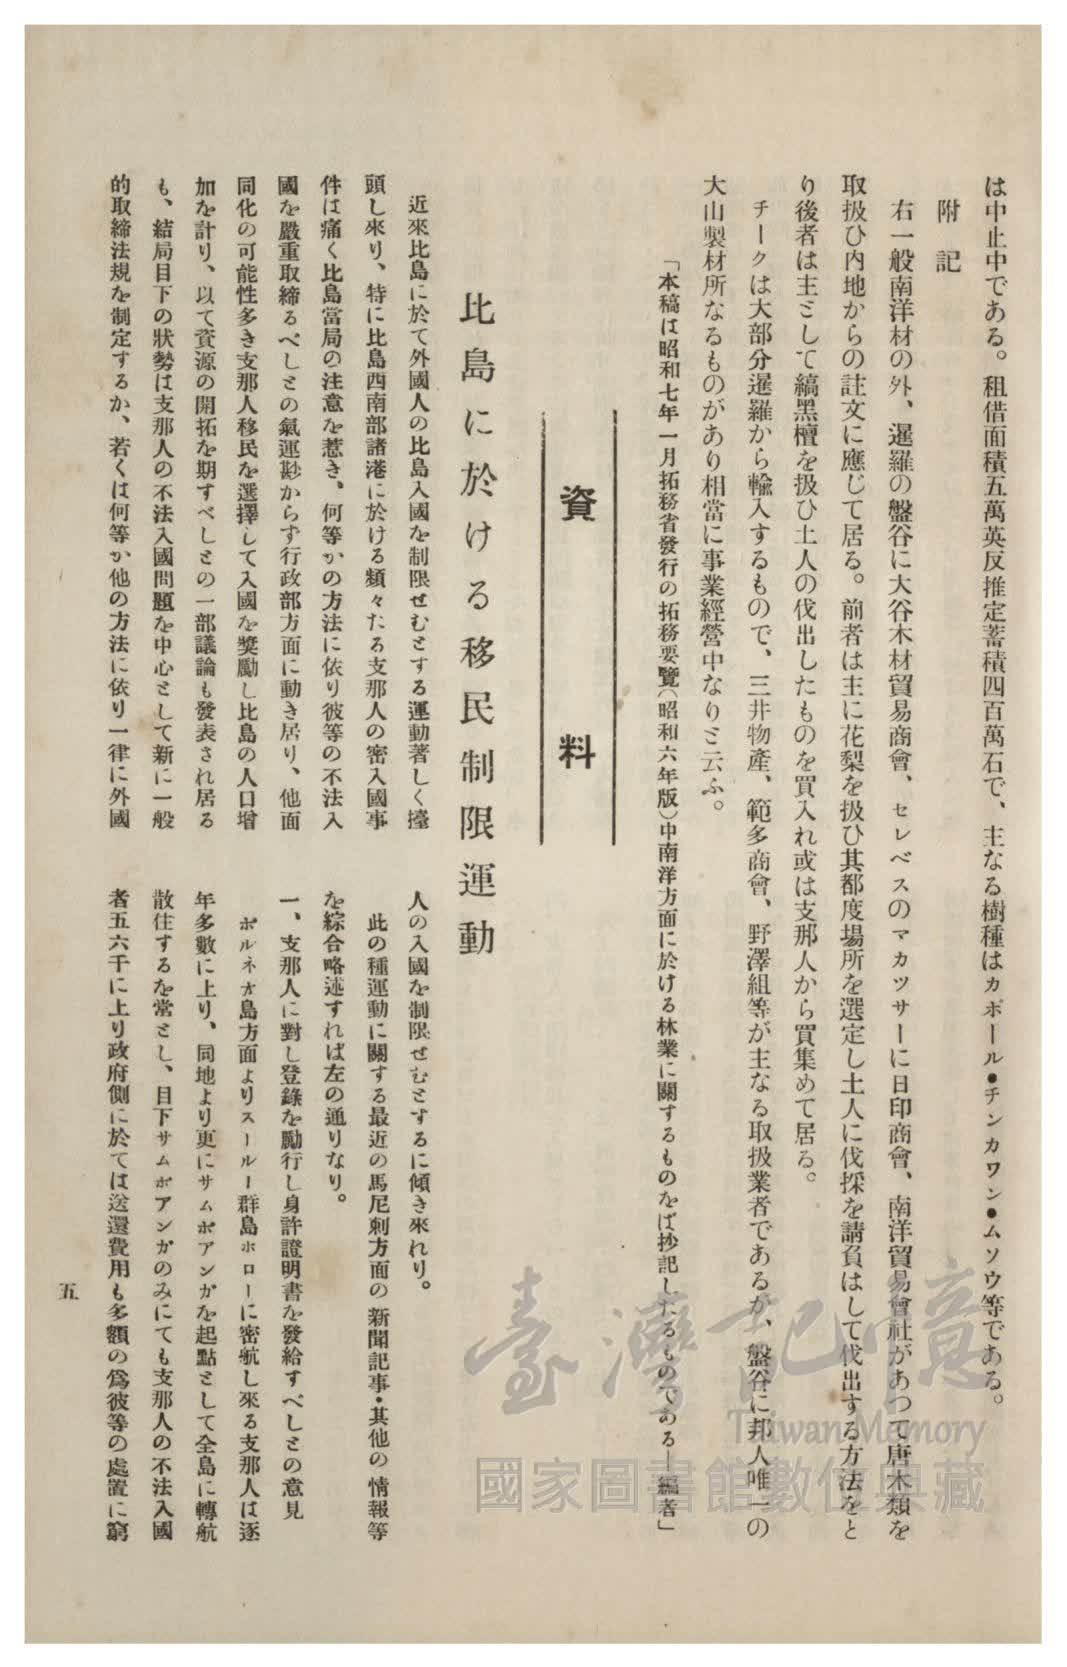 は中止中である。租借面積五萬英反推定蓄積四百萬石で、主なる樹種はカポール●チンカワン●ムソウ等である。
附記
右一般南洋材の外、暹羅の盤谷に大谷木材貿易商會、セレベスのマカツサーに日印商會、南洋貿易會社があつて唐木類を
取扱ひ内地からの註文に應じて居る。前者は主に花梨を扱ひ其都度場所を選定し土人に伐採を請負はして伐出する方法をと
り後者は主として縞黑檀を扱ひ土人の伐出したものを買入れ或は支那人から買集めて居る。
チークは大部分暹羅から輸入するもので、三井物產、範多商會、野澤組等が主なる取扱業者であるが、盤谷に邦人唯一の
大山製材所なるものがあり相當に事業經營中なりと云ふ。
「本稿は昭和七年一月拓務省發行の拓務要覽(昭和六年版)中南洋方面に於ける林業に關するものをば抄記したるものである―編者」
資料
比島に於ける移民制限運動
近來比島に於て外國人の比島入國を制限せむとする運動著しく擡
頭し來り、特に比島西南部諸港に於ける頻々たる支那人の密入國事
件は痛く比島當局の注意を惹き、何等かの方法に依り彼等の不法入
國を嚴重取締るべしとの氣運尠からず行政部方面に動き居り、他面
同化の可能性多き支那人移民を選擇して入國を獎勵し比島の人口增
加を計り、以て資源の開拓を期すべしとの一部議論も發表され居る
も、結局目下の狀勢は支那人の不法入國問題を中心として新に一般
的取締法規を制定するか、若くは何等か他の方法に依り一律に外國
人の入國を制限せむとするに傾き來れり。
此の種運動に關する最近の馬尼剌方面の新聞記事・其他の情報等
を綜合略述すれば左の通りなり。
一、支那人に對し登錄を勵行し身許證明書を發給すべしとの意見
ボルネオ島方面よりスールー群島ホローに密航し來る支那人は逐
年多數に上り、同地より更にサムボアンガを起點として全島に轉航
散住するを常とし、目下サムボアンガのみにても支那人の不法入國
者五六千に上り政府側に於ては送還費用も多額の爲彼等の處置に窮
五
臺灣記憶
Taiwan Memory
國家圖書館數位典藏